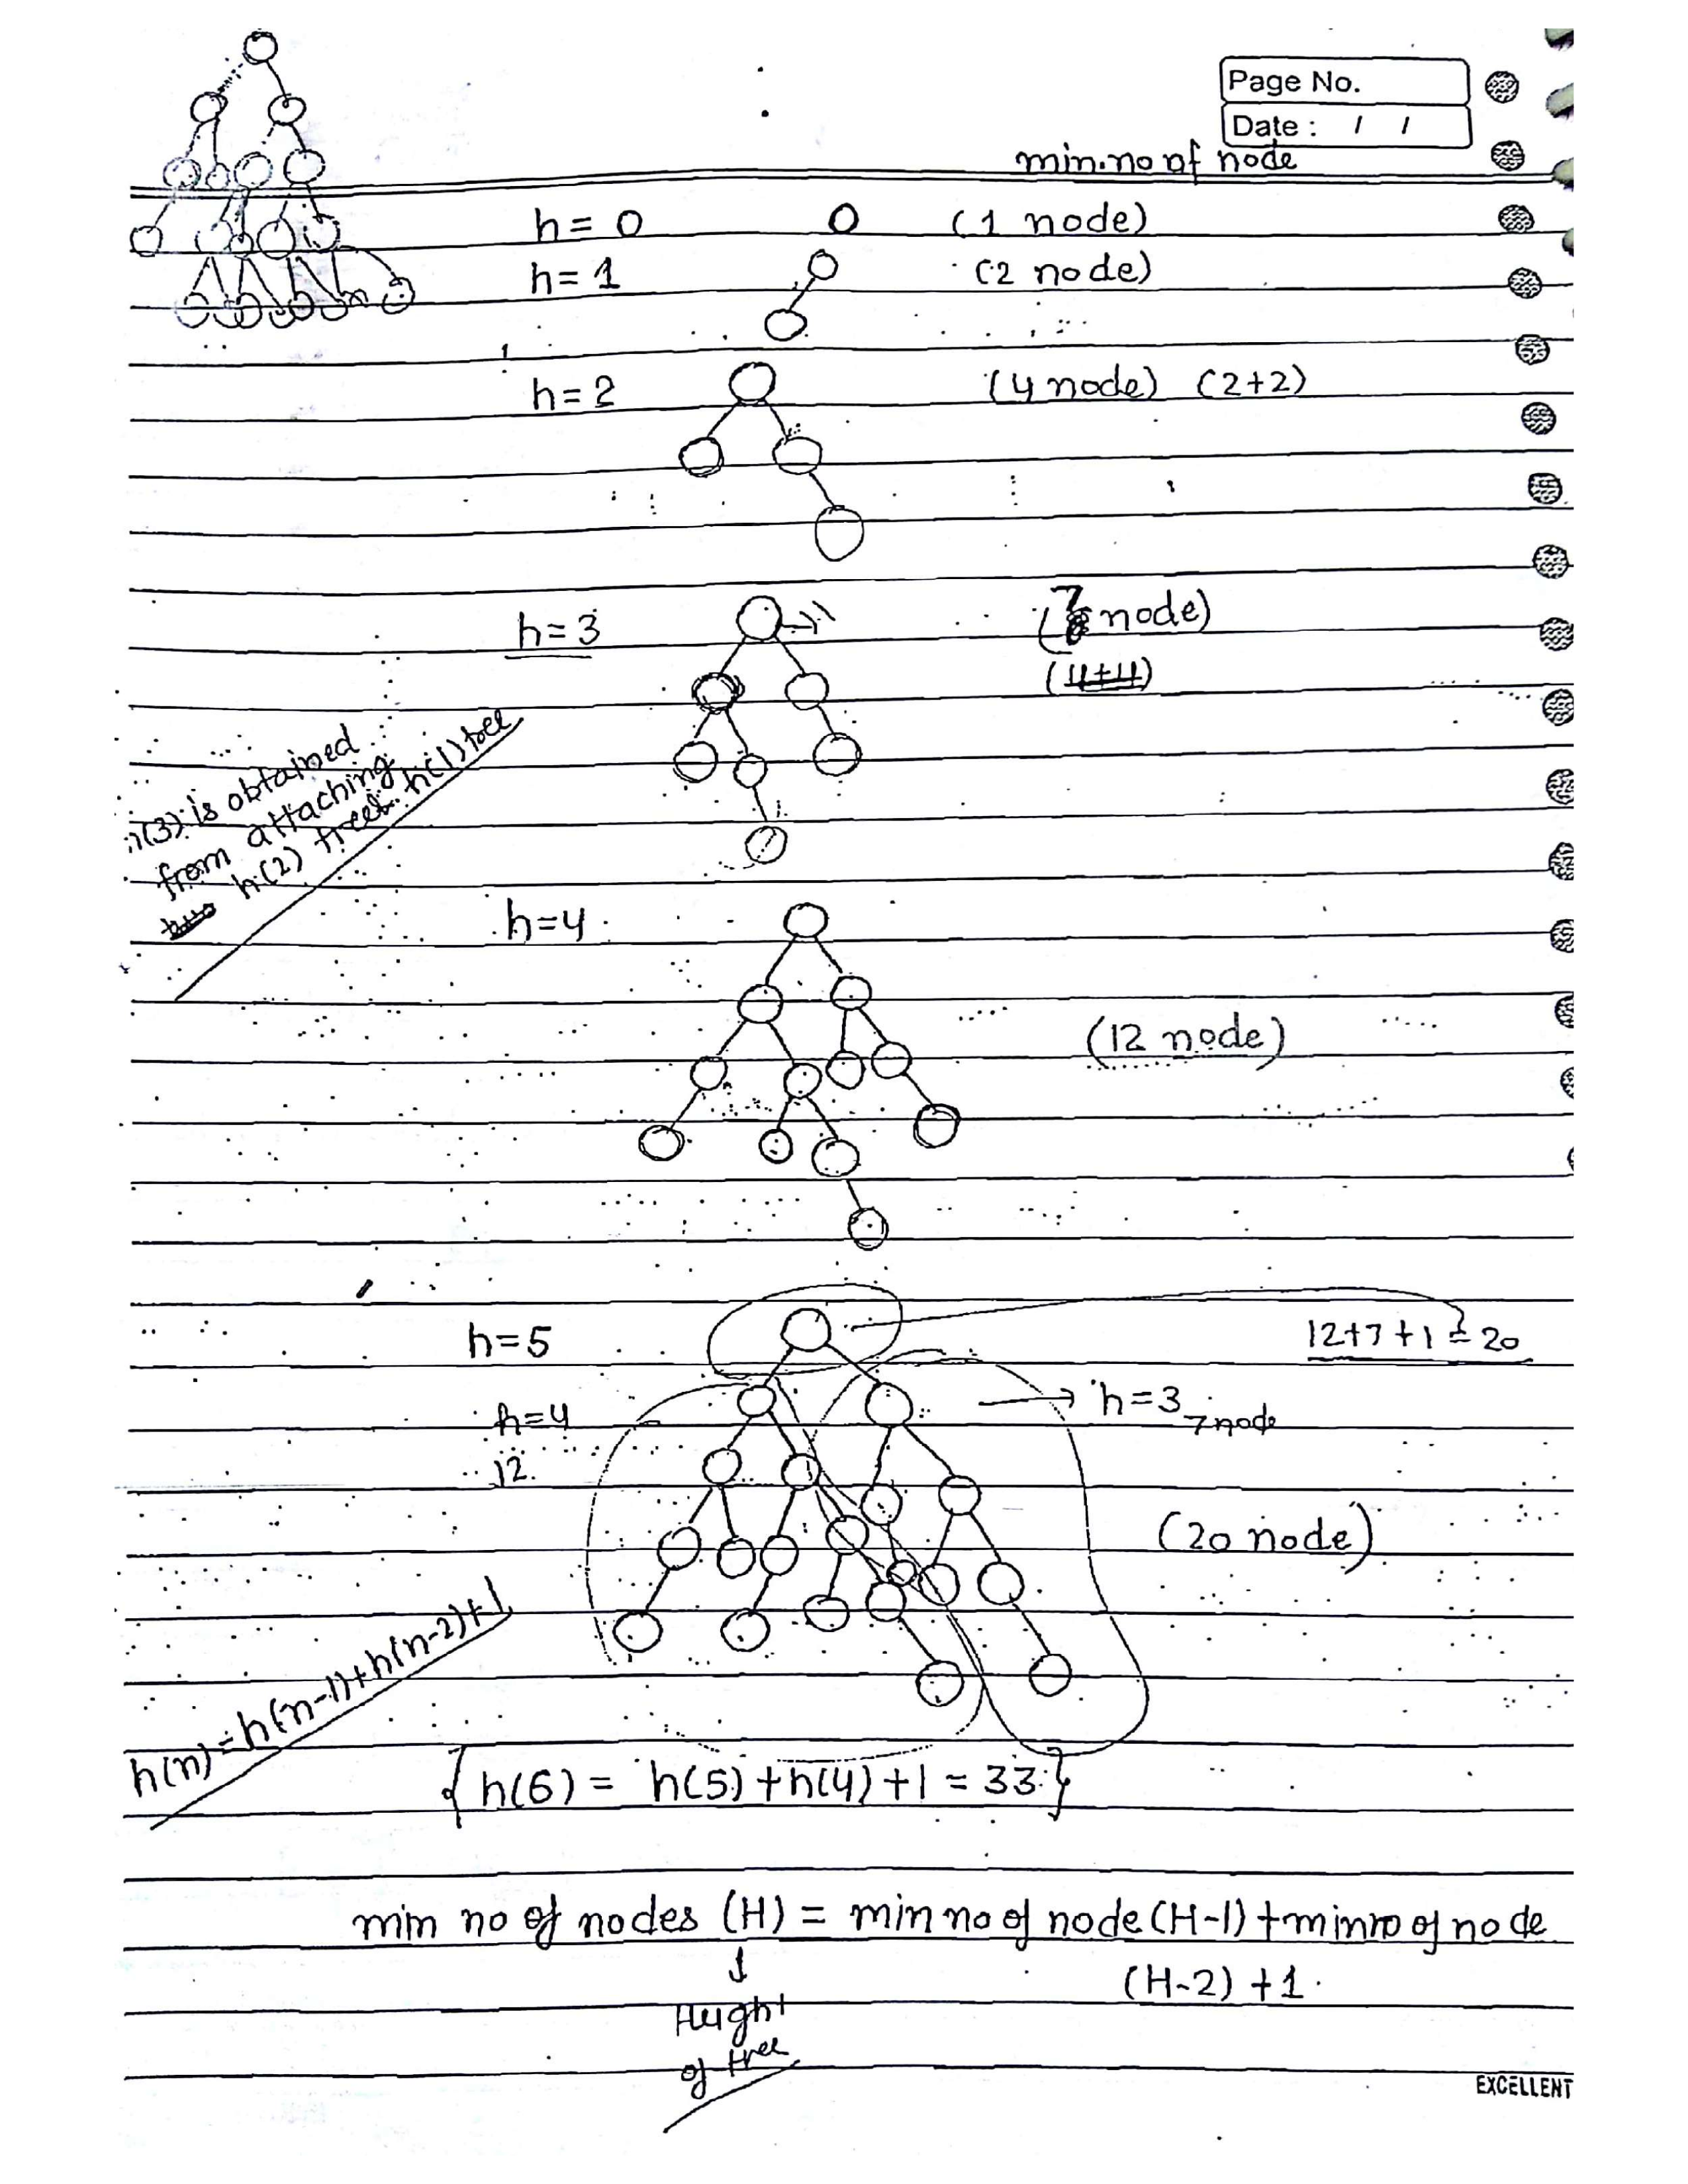 Page No.
Date : / /
min.no of node
h = 0 (1 node)
h = 1 (2 node)
h = 2 (4 node) (2+2)
h = 3 (7 node)
(4+4)
h(3) is obtained
from attaching
h(2) tree h(1) tree
h=4
(12 node)
h=5 12+7+1=20
h=4 h=3 7node
12.
(20 node)
h(n) = h(n-1)+h(n-2)+1
{ h(6) = h(5) +h(4) +1 = 33 }
min no of nodes (H) = min no of node (H-1) + min no of node
(H-2) +1.
Hught
of tree
EXCELLENT